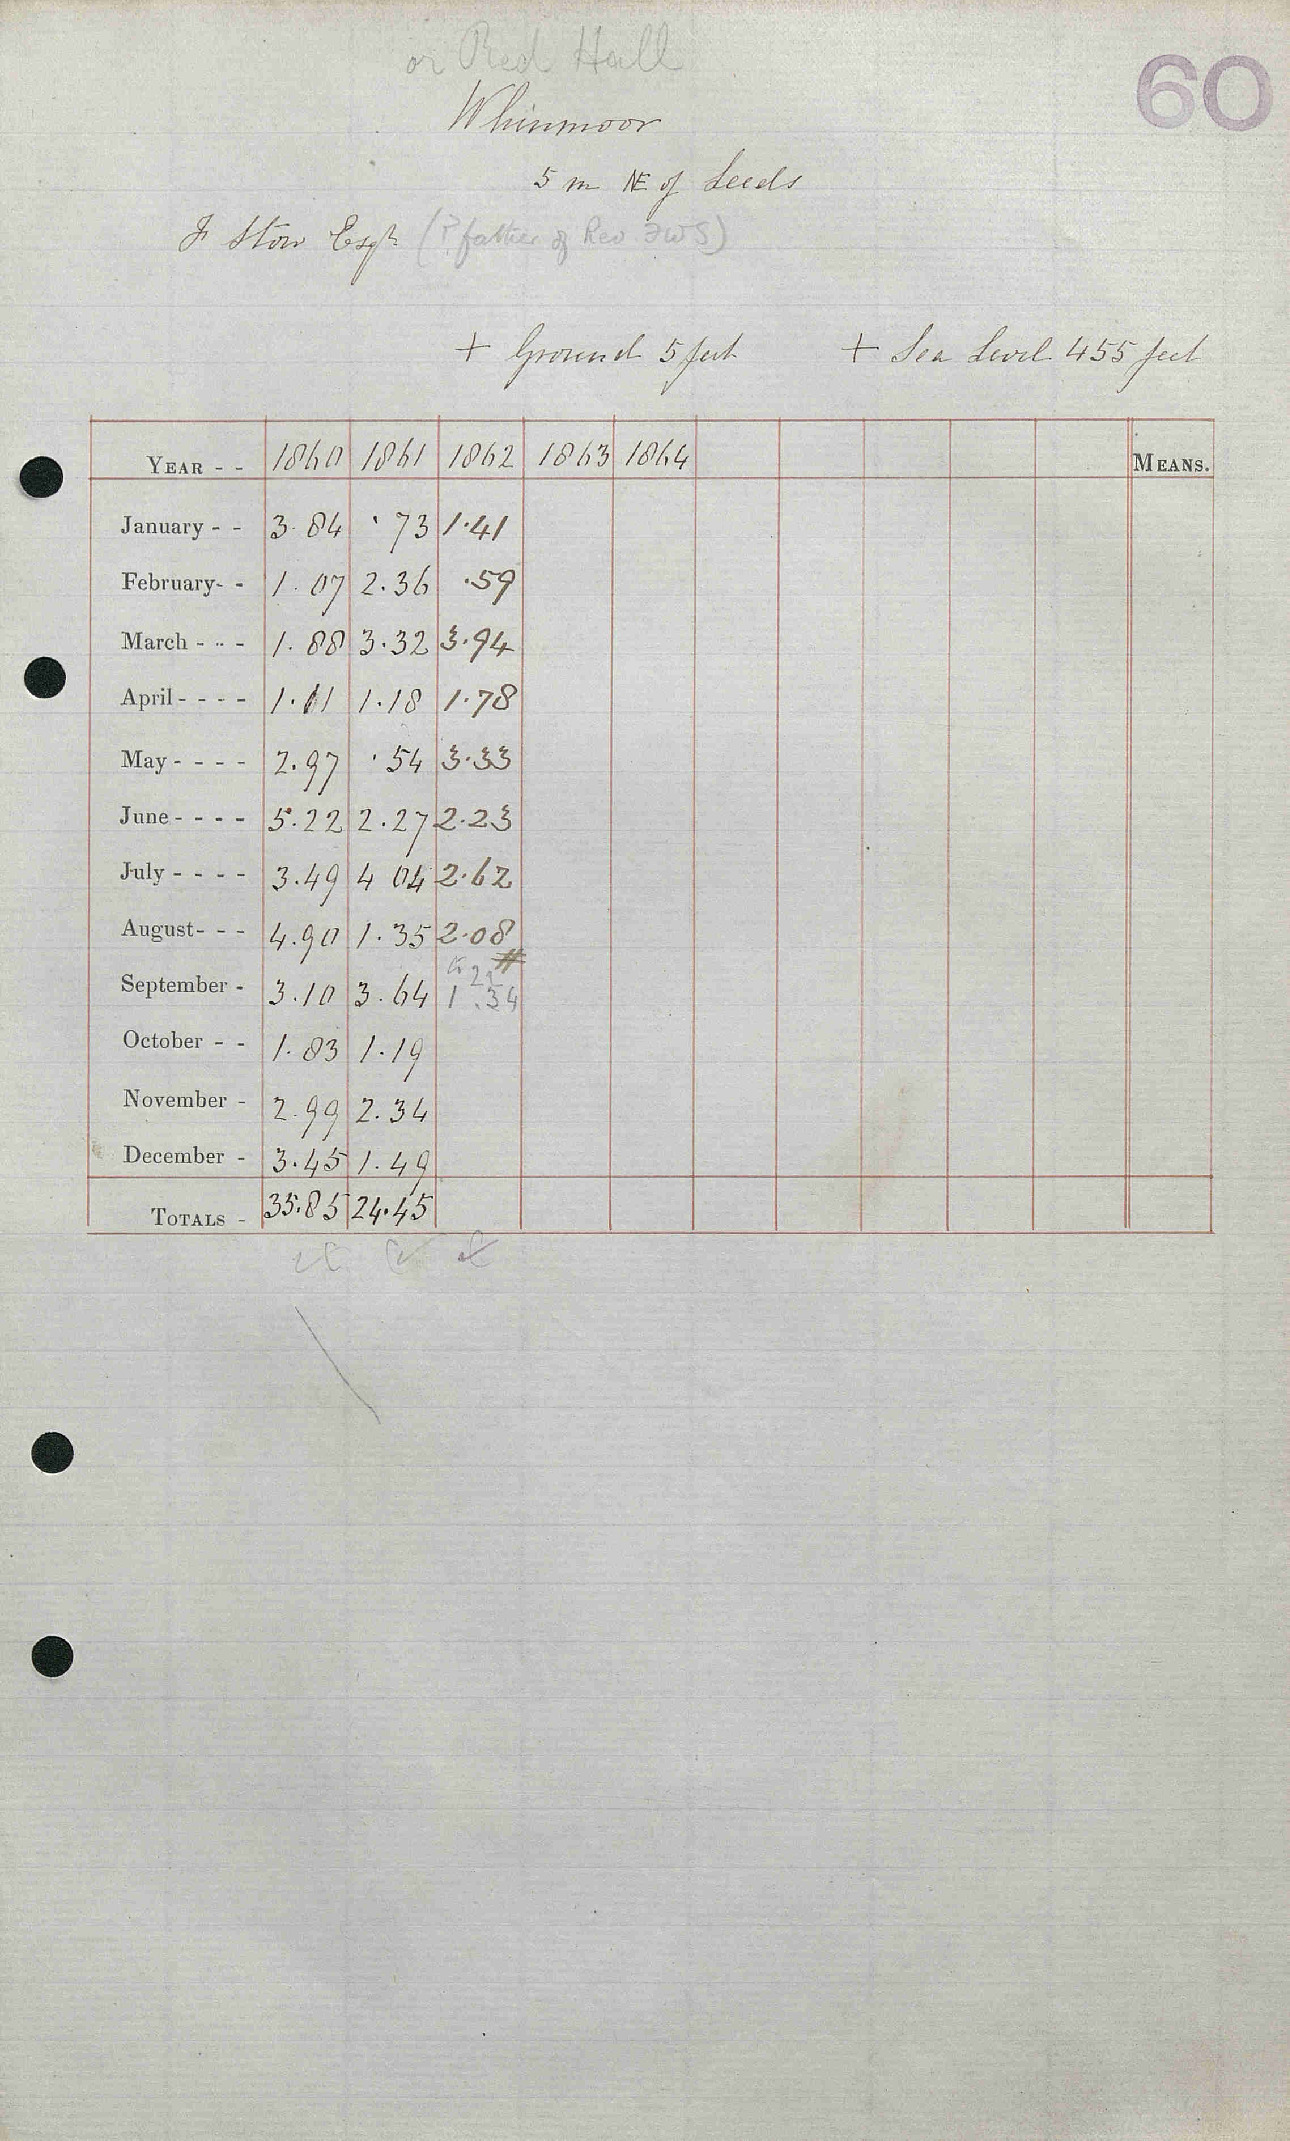 or Red Hall
60
Whinmoor
5 m NE of Leeds
F Stow Esqr (? father of Rev FWS)
+ Ground 5 feet + Sea Level 455 feet
YEAR - - 1860 1861 1862 1863 1864 MEANS.
January - - 3.84 .73 1.41
February - - 1.07 2.36 .59
March - - - 1.88 3.32 3.94
April - - - - 1.11 1.18 1.78
May - - - - 2.97 .54 3.33
June - - - - 5.22 2.27 2.23
July - - - - 3.49 4 04 2.62
August - - - 4.90 1.35 2.08
#
22
September - 3.10 3.64 1.34
October - - 1.83 1.19
November - 2.99 2.34
December - 3.45 1.49
TOTALS - 35.85 24.45